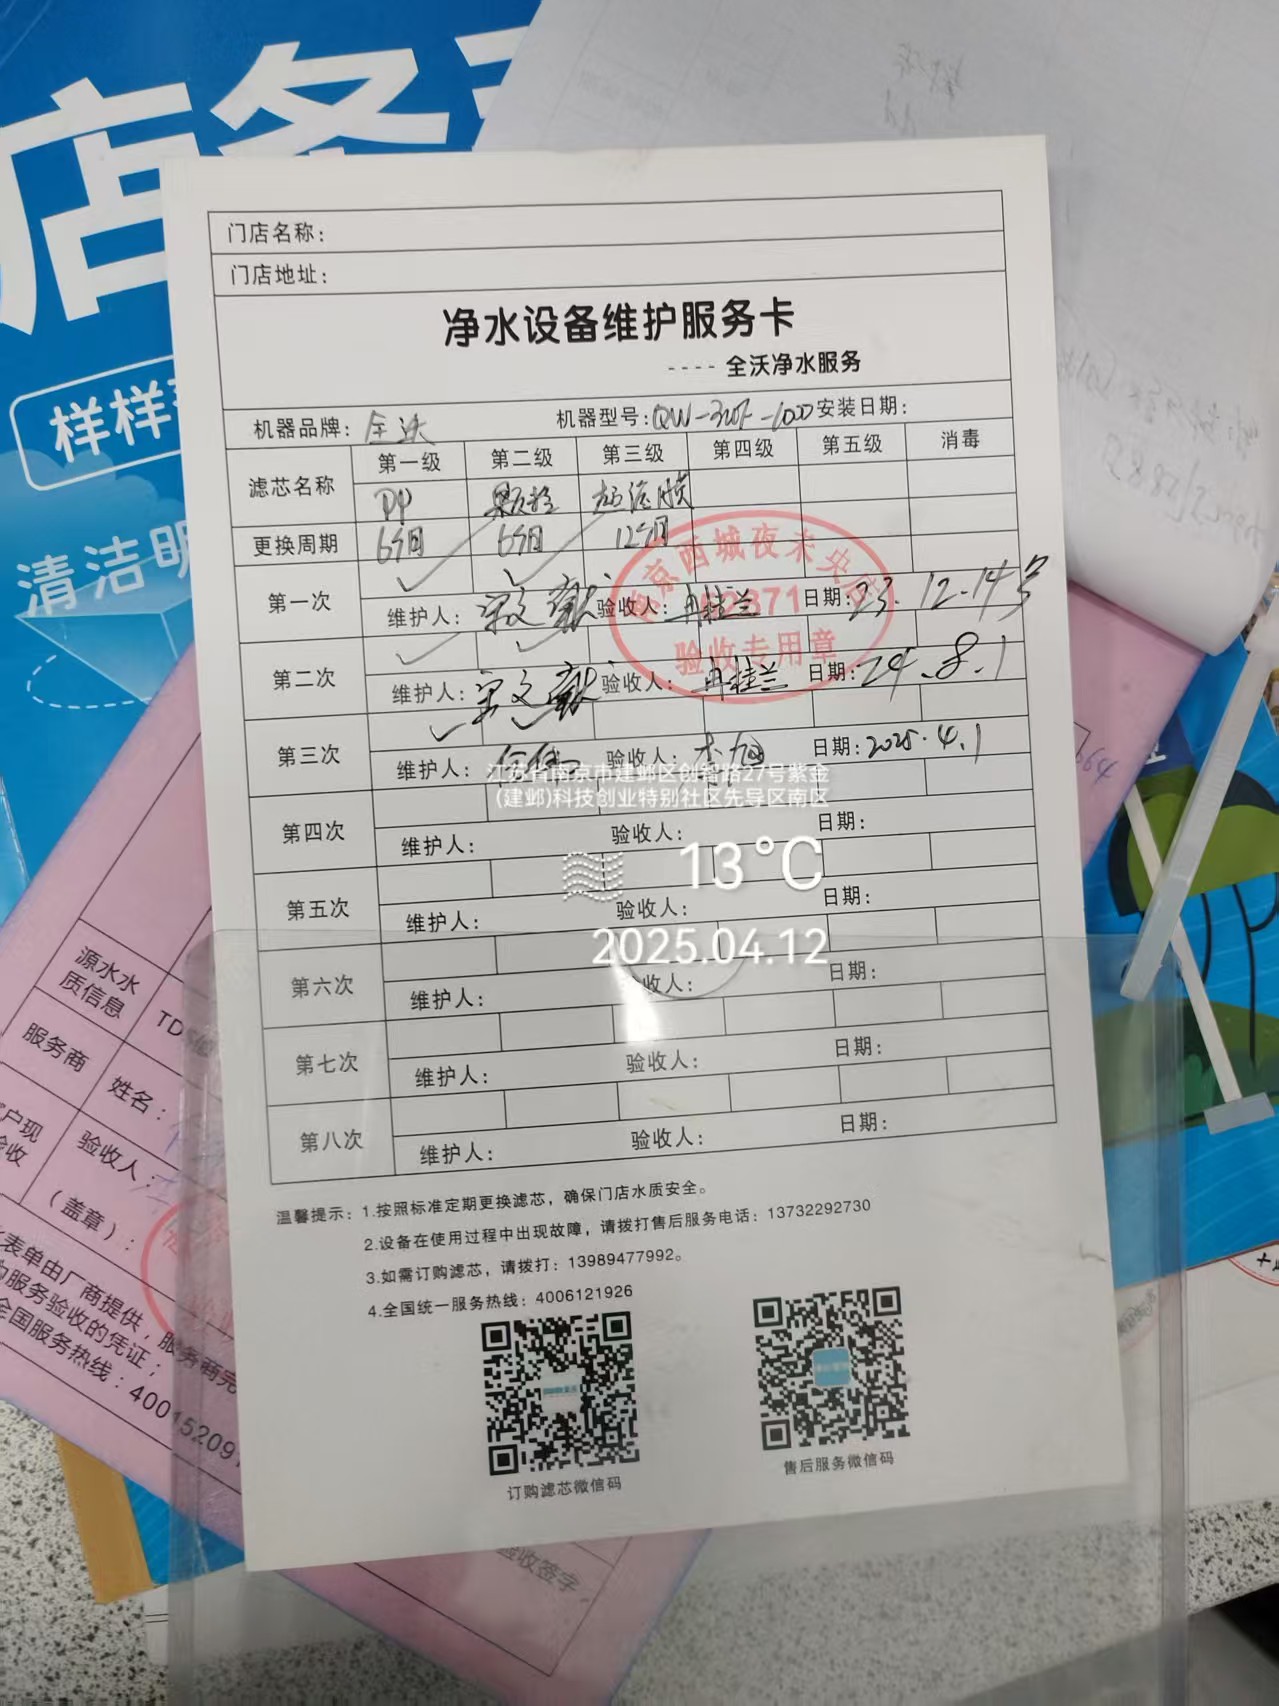 店务
样样
清洁明
门店名称：
门店地址：
净水设备维护服务卡
---- 全沃净水服务
机器品牌：全沃 机器型号：QW-3UF-1000 安装日期：
滤芯名称 第一级 第二级 第三级 第四级 第五级 消毒
PP 颗粒 超滤膜
更换周期 6个月 6个月 12个月
南京西城夜未央店
验收专用章
第一次 ✓ ✓
维护人：宋文献 验收人：冉桂兰 日期：23.12.14号
第二次 ✓ ✓
维护人：宋文献 验收人：冉桂兰 日期：24.8.1
第三次 ✓ ✓
维护人： 验收人： 日期：2025.4.1
江苏省南京市建邺区创智路27号紫金
(建邺)科技创业特别社区先导区南区
第四次
维护人： 验收人： 日期：
13°C
第五次
维护人： 验收人： 日期：
2025.04.12
第六次
维护人： 验收人： 日期：
第七次
维护人： 验收人： 日期：
第八次
维护人： 验收人： 日期：
温馨提示：1.按照标准定期更换滤芯，确保门店水质安全。
2.设备在使用过程中出现故障，请拨打售后服务电话：13732292730
3.如需订购滤芯，请拨打：13989477992。
4.全国统一服务热线：4006121926
订购滤芯微信码 售后服务微信码
源水水
质信息
TDS值
服务商 姓名：
户现
验收人：
（盖章）：
表单由厂商提供，服务商完
服务验收的凭证；
全国服务热线：40015209
验收签字